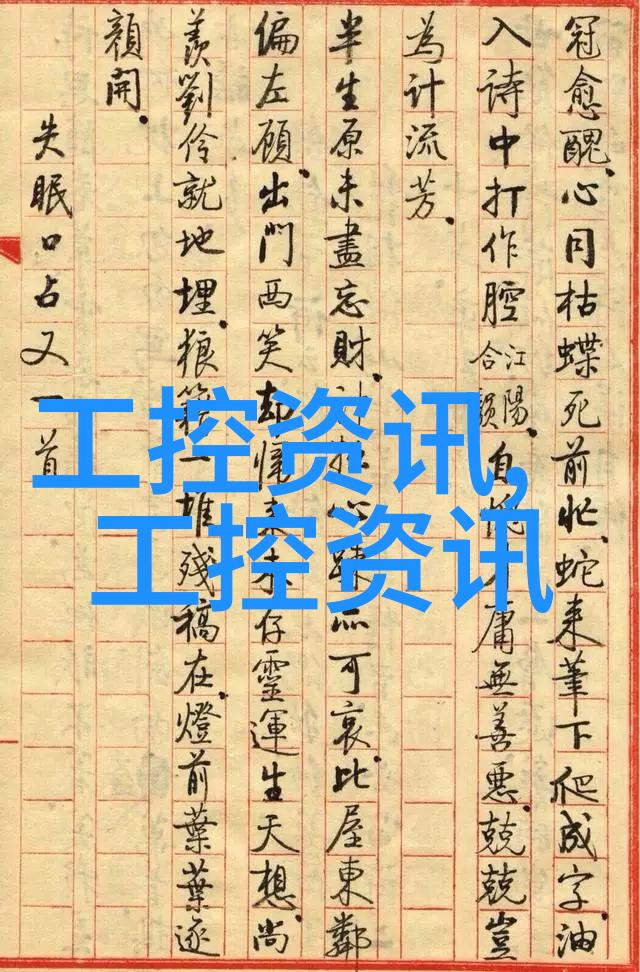 冠愈醜。心同枯蝶死前忙。蛇来筆下爬成字。油
入詩中打作腔江陽合韻。自庸無善惡。兢兢豈
為計流芳。
半生原未盡忘財。心可哀。比屋東鄰
偏左顧。出門西笑却歸来。未存靈運生天想。尚
羨劉伶就地埋。狼籍一堆殘稿在。燈前葉葉逐
顏開。
失眠口占又一首
工控资讯,
工控资讯